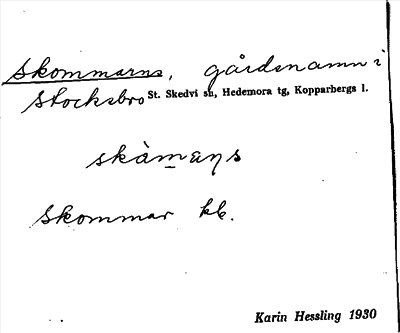 Skommarns, gårdsnamn i
Stocksbro St. Skedvi sn, Hedemora tg, Kopparbergs l.
skàmaɳs
Skommar kk.
Karin Hessling 1930